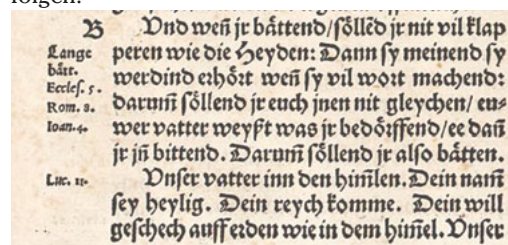 B
Vnd weñ jr bättend/söllēd jr nit vil klap
Lange
bätt.
peren wie die Heyden: Dann sy meinend sy
Eccles. 5.
werdind erhört weñ sy vil wort machend:
Rom. 8.
darumm̄ söllend jr euch jnen nit gleychen/ eu-
Ioan. 4.
wer vatter weyßt was jr bedörffend/ee dañ
jr jñ bittend. Darum̄ söllend jr also bätten.
Luc. 11.
Vnser vatter inn den him̄len. Dein nam̄
sey heylig. Dein reych komme. Dein will
geschech auff erden wie in dem him̄el. Vnser